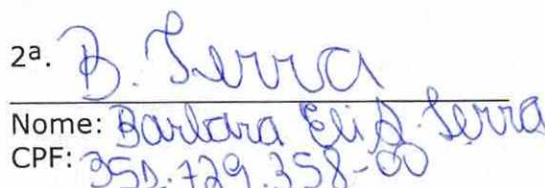 2ª. B. Serra
Nome: Barbara Eli A. Serra
CPF: 351.729.358-00